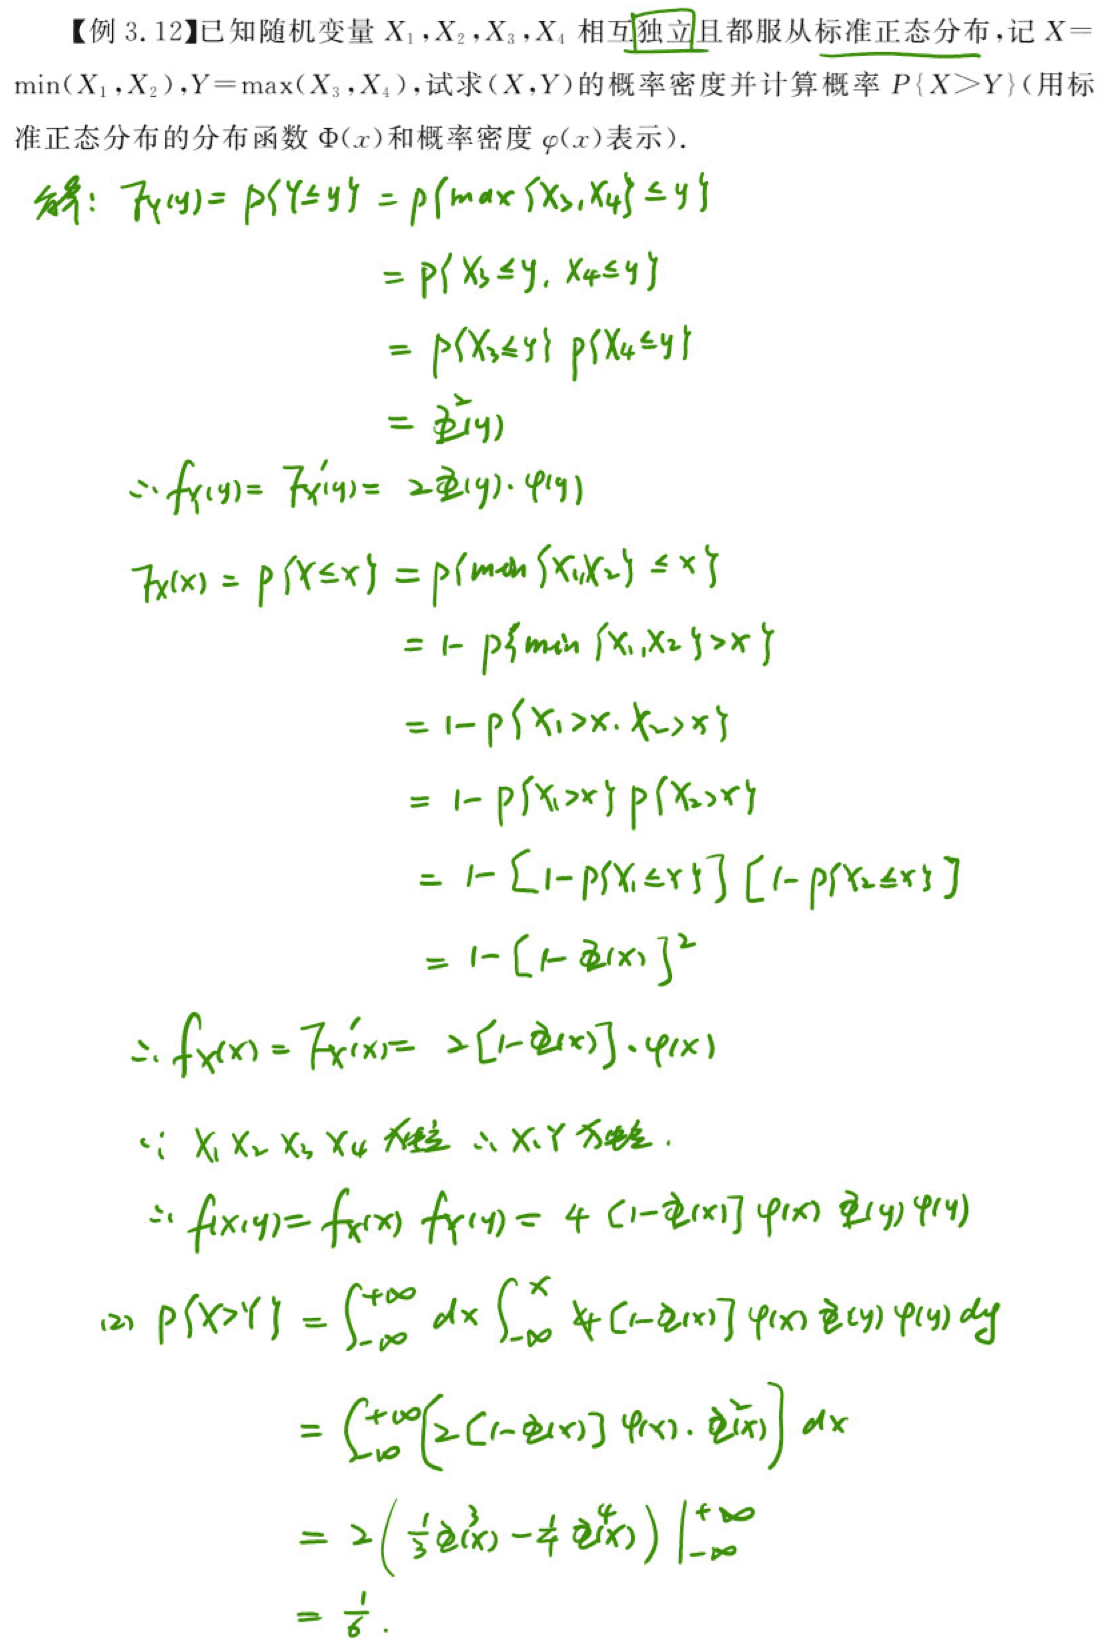 【例 3.12】已知随机变量 X₁,X₂,X₃,X₄ 相互独立且都服从标准正态分布,记 X=
min(X₁,X₂),Y=max(X₃,X₄),试求(X,Y)的概率密度并计算概率 P{X>Y}(用标
准正态分布的分布函数 Φ(x)和概率密度 φ(x)表示).
解: F_Y(y)= P{Y≤y} = P{max{X₃,X₄}≤y}
= P{X₃≤y, X₄≤y}
= P{X₃≤y} P{X₄≤y}
= Φ²(y)
∴ f_Y(y)= F_Y'(y)= 2Φ(y)·φ(y)
F_X(x) = P{X≤x} = P{min{X₁,X₂} ≤x}
= 1- P{min{X₁,X₂}>x}
= 1- P{X₁>x. X₂>x}
= 1- P{X₁>x} P{X₂>x}
= 1- [1-P{X₁≤x}] [1-P{X₂≤x}]
= 1- [1-Φ(x)]²
∴ f_X(x) = F_X'(x)= 2[1-Φ(x)]·φ(x)
∵ X₁ X₂ X₃ X₄ 独立 ∴ X,Y 独立.
∴ f(x,y)= f_X(x) f_Y(y) = 4 [1-Φ(x)] φ(x) Φ(y) φ(y)
(2) P{X>Y} = ∫_{-∞}^{+∞} dx ∫_{-∞}^{x} 4 [1-Φ(x)] φ(x) Φ(y) φ(y) dy
= ∫_{-∞}^{+∞} [2[1-Φ(x)] φ(x)·Φ²(x)] dx
= 2(1/3 Φ³(x) - 1/4 Φ⁴(x)) |_{-∞}^{+∞}
= 1/6.